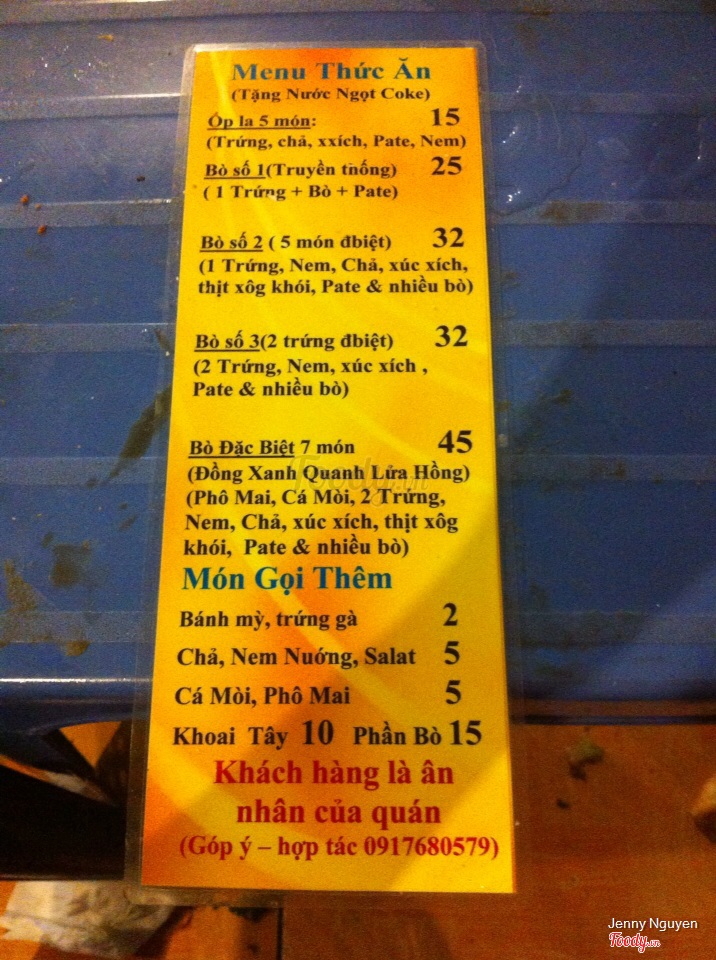 Menu Thức Ăn
(Tặng Nước Ngọt Coke)
Ốp la 5 món: 15
(Trứng, chả, xxích, Pate, Nem)
Bò số 1(Truyền thống) 25
( 1 Trứng + Bò + Pate)
Bò số 2 ( 5 món đbiệt) 32
(1 Trứng, Nem, Chả, xúc xích,
thịt xôg khói, Pate & nhiều bò)
Bò số 3(2 trứng đbiệt) 32
(2 Trứng, Nem, xúc xích ,
Pate & nhiều bò)
Bò Đặc Biệt 7 món 45
(Đồng Xanh Quanh Lửa Hồng)
(Phô Mai, Cá Mòi, 2 Trứng,
Nem, Chả, xúc xích, thịt xôg
khói, Pate & nhiều bò)
Món Gọi Thêm
Bánh mỳ, trứng gà 2
Chả, Nem Nướng, Salat 5
Cá Mòi, Phô Mai 5
Khoai Tây 10 Phần Bò 15
Khách hàng là ân
nhân của quán
(Góp ý – hợp tác 0917680579)
Foody.vn
Jenny Nguyen
Foody.vn